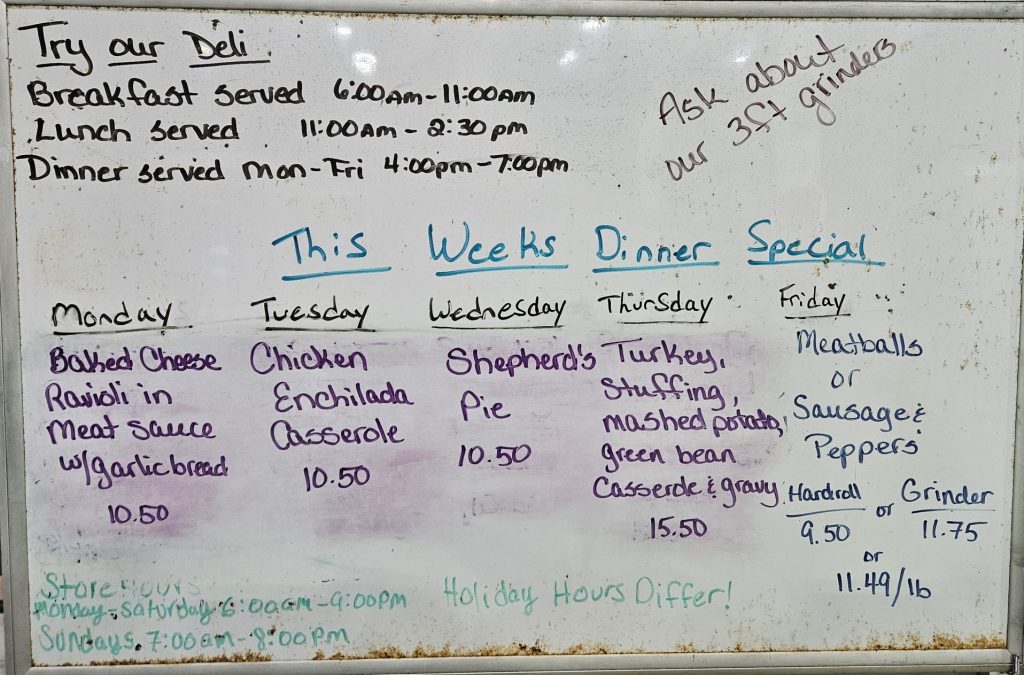 Try our Deli
Breakfast served 6:00am-11:00am
Lunch served 11:00am - 2:30pm
Dinner served mon-Fri 4:00pm-7:00pm
Ask about
our 3ft grinders
This Weeks Dinner Special
Monday
Baked Cheese
Ravioli in
Meat Sauce
w/garlic bread
10.50
Tuesday
Chicken
Enchilada
Casserole
10.50
Wednesday
Shepherd's
Pie
10.50
Thursday
Turkey,
Stuffing,
mashed potato,
green bean
Casserole & gravy
15.50
Friday
Meatballs
or
Sausage &
Peppers
Hardroll or Grinder
9.50 11.75
or
11.49/lb
Store Hours
Monday-Saturday 6:00am-9:00pm
Sundays 7:00am-8:00pm
Holiday Hours Differ!